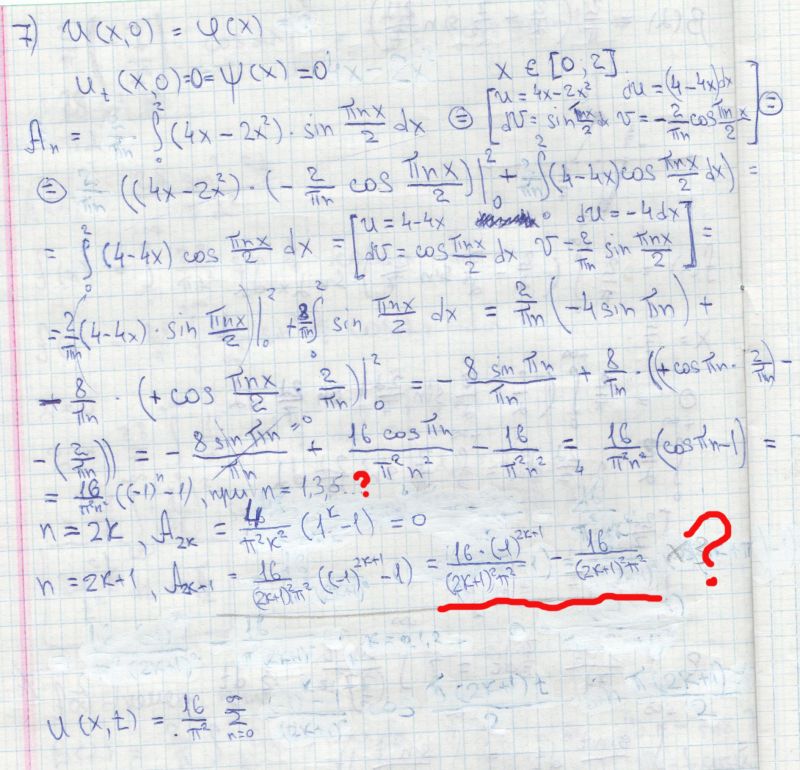 7) U(x,0) = φ(x)
U_t(x,0)=0=ψ(x)=0
x ∈ [0;2]
A_n = ∫_0^2 (4x-2x²)·sin πnx/2 dx ⊜ [U=4x-2x² dU=(4-4x)dx dV=sin πnx/2 dx V=-2/πn cos πnx/2] ⊜
⊜ ((4x-2x²)·(-2/πn cos πnx/2)|_0^2 + ∫_0^2 (4-4x)cos πnx/2 dx) =
= ∫_0^2 (4-4x) cos πnx/2 dx = [U=4-4x dU=-4dx dV=cos πnx/2 dx V=2/πn sin πnx/2] =
= 2/πn (4-4x)·sin πnx/2 |_0^2 + 8/πn ∫_0^2 sin πnx/2 dx = 2/πn (-4 sin πn) +
- 8/πn · (+cos πnx/2 · 2/πn)|_0^2 = - 8 sin πn/πn + 8/πn · ((+cos πn · 2/πn) -
- (2/πn)) = - 8 sin πn/πn =0 + 16 cos πn/π²n² - 16/π²n² = 16/π²n² (cos πn - 1) =
= 16/π²n² ((-1)^n - 1), при n = 1,3,5.. ?
n = 2k, A_2k = 4/π²k² (1^k - 1) = 0
n = 2k+1, A_2k+1 = 16/(2k+1)²π² ((-1)^2k+1 - 1) = 16·(-1)^2k+1/(2k+1)²π² - 16/(2k+1)²π² ?
U(x,t) = 16/π² Σ_n=0^∞